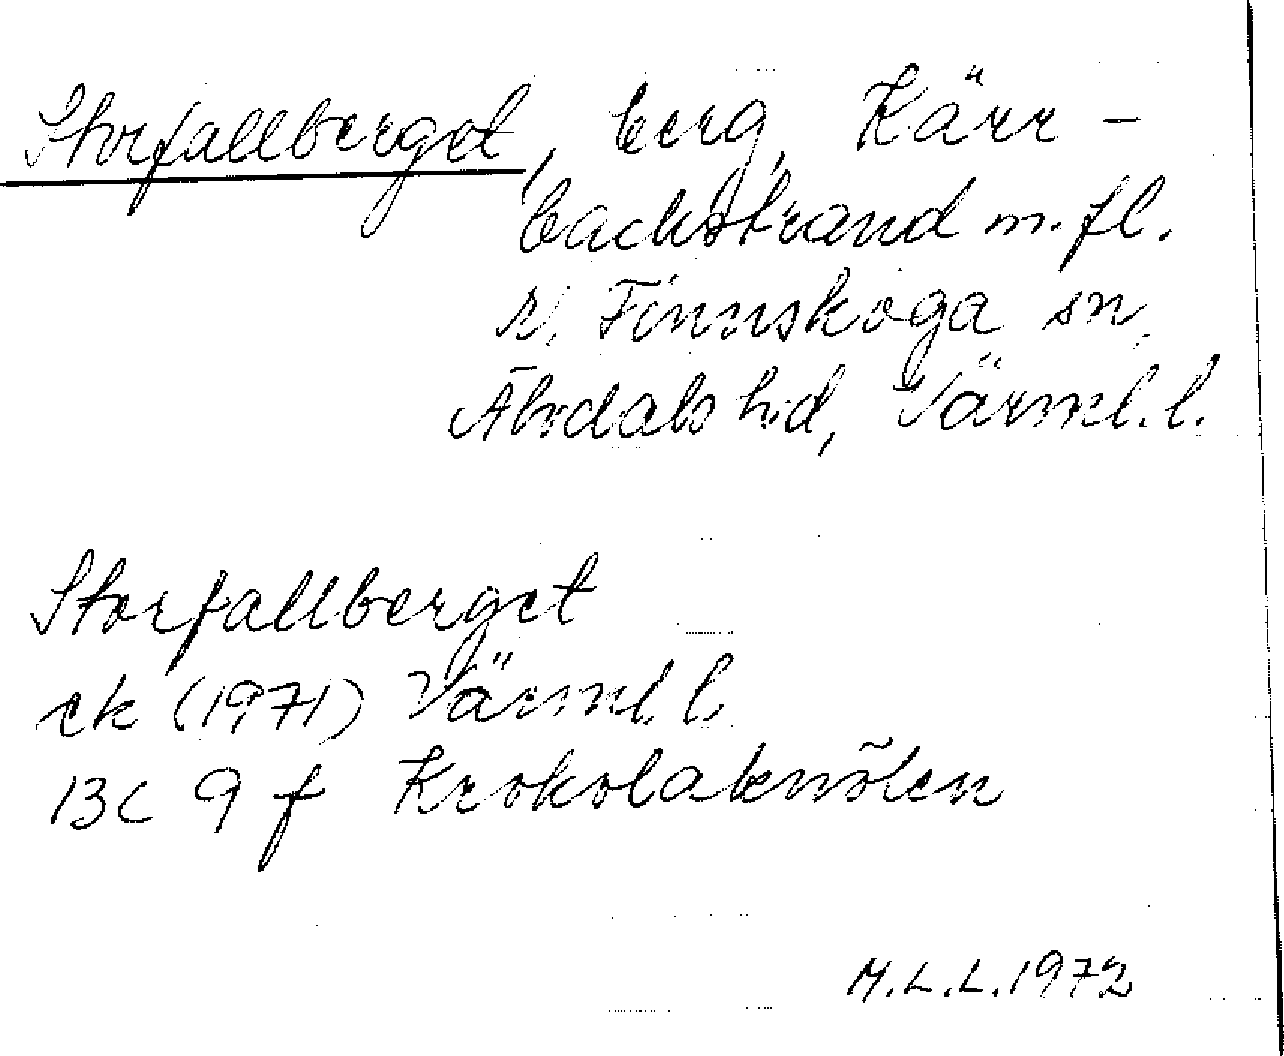 Storfallberget, berg, Kärr-
backstrand m.fl.
s/. Finnskoga sn,
Älvdals hd, Värml.l.
Storfallberget
ek (1971) Värml.l.
13C 9f Krokolaknölen
M.L.L.1972